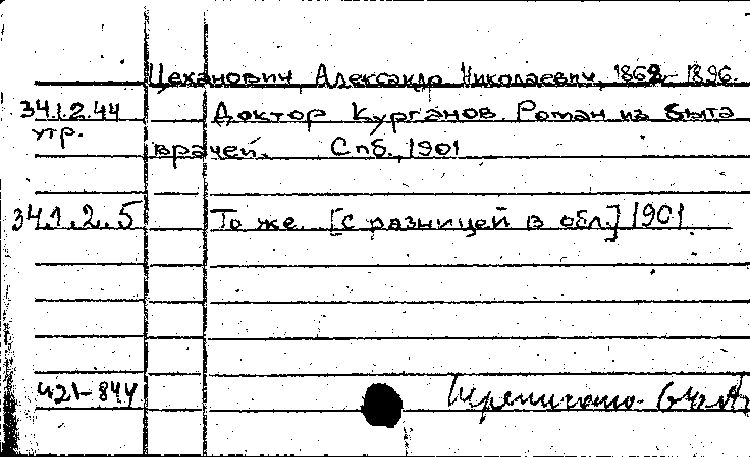 Цеханович, Александр Николаевич, 1862-1896.
34.1.2.44 Доктор Курганов. Роман из быта
упр. врачей. Спб., 1901
34.1.2.5 То же. [с разницей в обл.] 1901
421-844